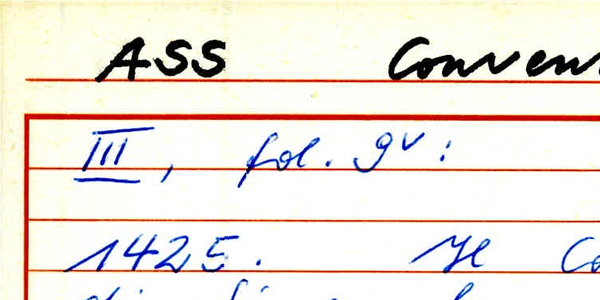 ASS Conven
III, fol. 9v:
1425. Il Co